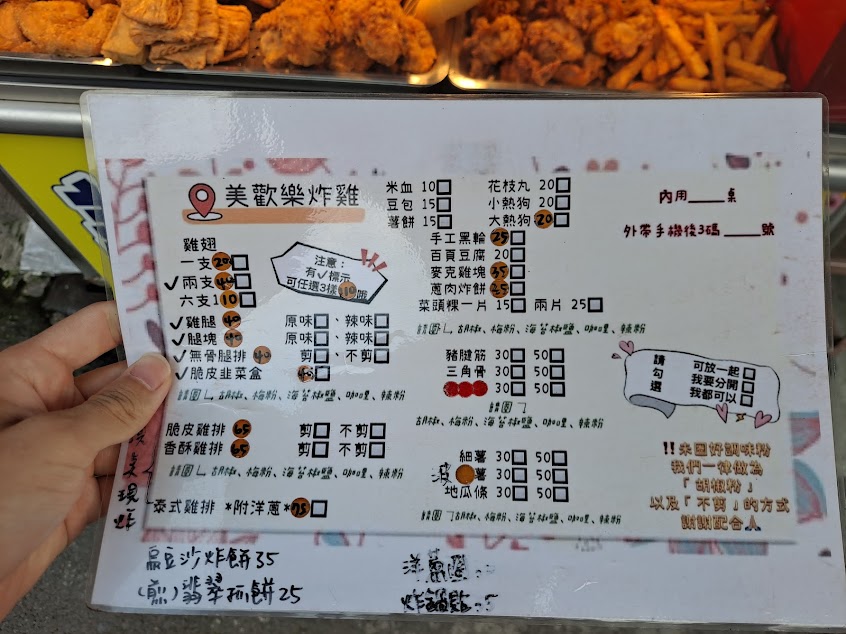 美歡樂炸雞
雞翅
一支20
✓兩支
六支110
注意：
有✓標示
可任選3樣
✓雞腿40 原味、辣味
腿塊 原味、辣味
✓無骨腿排40 剪、不剪
✓脆皮韭菜盒
請圈 胡椒、梅粉、海苔椒鹽、咖哩、辣粉
脆皮雞排65 剪 不剪
香酥雞排65 剪 不剪
請圈 胡椒、梅粉、海苔椒鹽、咖哩、辣粉
泰式雞排 *附洋蔥*75
米血 10
豆包 15
薯餅 15
花枝丸 20
小熱狗 20
大熱狗 20
手工黑輪25
百頁豆腐 20
麥克雞塊35
蔥肉炸餅
菜頭粿一片 15 兩片 25
請圈 胡椒、梅粉、海苔椒鹽、咖哩、辣粉
豬腱筋 30 50
三角骨 30 50
30 50
請圈
胡椒、梅粉、海苔椒鹽、咖哩、辣粉
細薯 30 50
波薯 30 50
地瓜條 30 50
請圈 胡椒、梅粉、海苔椒鹽、咖哩、辣粉
內用____桌
外帶手機後3碼 ____號
請勾選
可放一起
我要分開
我都可以
!!未圈好調味粉
我們一律做為
「胡椒粉」
以及「不剪」的方式
謝謝配合
豆沙炸餅35
(煎)翡翠抓餅25